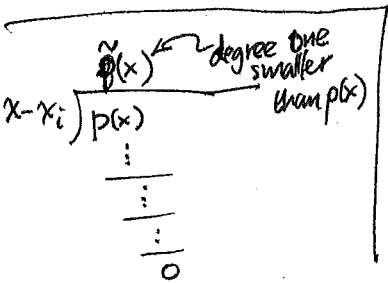 p̃(x)
degree one
smaller
than p(x)
x-xᵢ ) p(x)
⋮
⋮
⋮
0